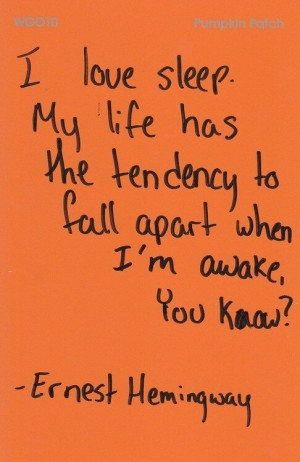 WG1310 Pumpkin Patch
I love sleep.
My life has
the tendency to
fall apart when
I'm awake,
You Know?
-Ernest Hemingway